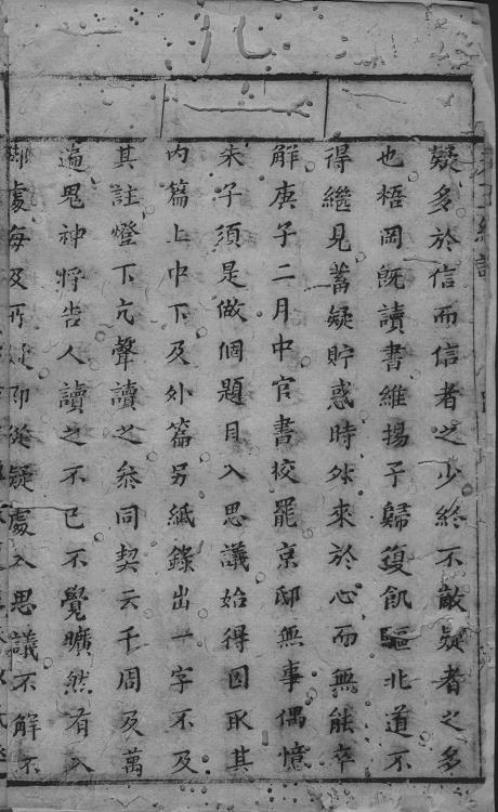 疑多於信而信者之少終不敵疑者之多
也梧岡既讀書維揚子歸復飢驅北道不
得繼見蓄疑貯惑時炏來於心而無能卒
解庚子二月中官書校罷京邸無事偶憶
朱子須是做個題目入思議始得因取其
内篇上中下及外篇另紙錄出一字不及
其註燈下亢聲讀之叅同契云千周及萬
遍鬼神將告人讀之不已不覺曠然有入
處每及所疑即從疑處入思議不解不